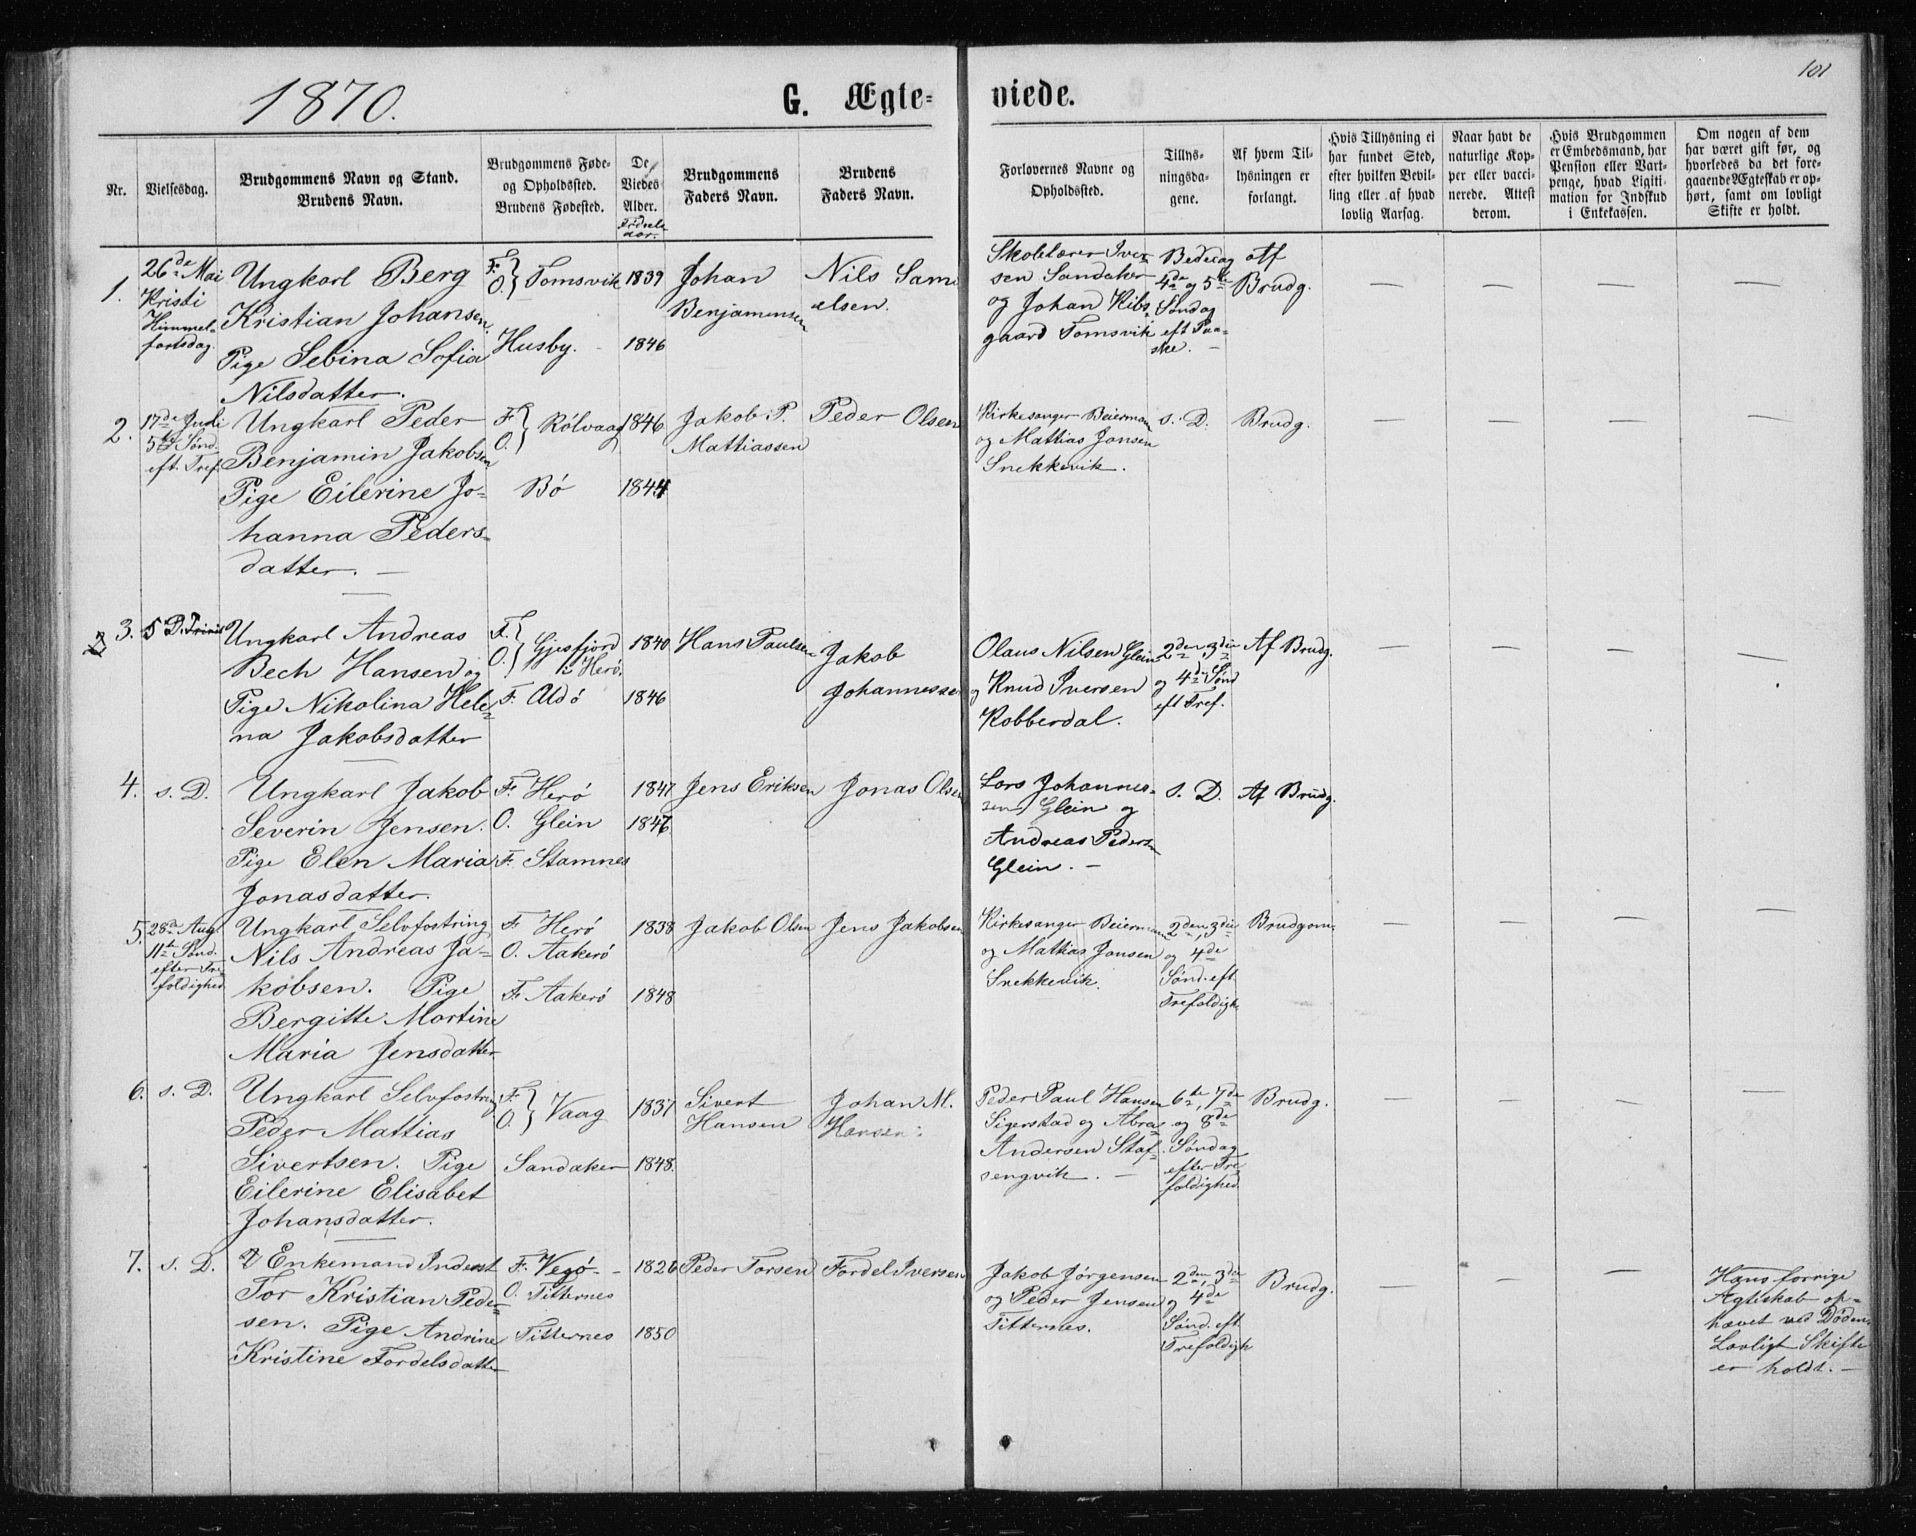 1870.
G. Ægte=
viede.
101
Nr.
Vielsesdag.
Brudgommens Navn og Stand.
Brudens Navn.
Brudgommens Føde-
og Opholdssted.
Brudens Fødested.
De
Viedes
Alder.
Fødsels
aar.
Brudgommens
Faders Navn.
Brudens
Faders Navn.
Forlovernes Navne og
Opholdssted.
Tillys-
ningsda-
gene.
Af hvem Til-
lysningen er
forlangt.
Hvis Tillysning ei
har fundet Sted,
efter hvilken Bevil-
ling eller af hvad
lovlig Aarsag.
Naar havt de
naturlige Kop-
per eller vacci-
nerede. Attest
derom.
Hvis Brudgommen
er Embedsmand, har
Pension eller Vart-
penge, hvad Ligiti-
mation for Indskud
i Enkekassen.
Om nogen af dem
har været gift før, og
hvorledes da det fore-
gaaende Ægteskab er op-
hørt, samt om lovligt
Skifte er holdt.
1.
26de Mai
Kristi
Himmel-
fartsdag.
Ungkarl Berg
Kristian Johansen.
Pige Sebina Sofia
Nilsdatter.
F.
O. } Tomsvik
Husby.
1839
1846
Johan
Benjaminsen
Nils Sam
elsen.
Skolelærer Iver-
sen Sandaker
og Johan Kibs
gaard Tomsvik
Bededag
4de og 5te
Søndag
eft Paa-
ske. -
Af
Brudg.
— — — —
2.
17de Juli
5te Sønd.
eft. Tref.
Ungkarl Peder
Benjamin Jakobsen
Pige Eilerine Jo-
hanna Peders-
datter. —
F.
O. } Rölvaag
Bö
1846
1844
Jakob P.
Mattiassen
Peder Olsen
Kirkesanger Beierman
og Mattias Jonsen
Snekkevik.
s. D.
Brudg.
— — — —
3.
5 D. Trinit
Ungkarl Andreas
Bech Hansen og
Pige Nikolina Hele-
na Jakobsdatter
F.
O. } Gjesfjord
i Herö.
F. Aldö
1840
1846
Hans Paulsen
Jakob
Johannessen
Olaus Nilsen Glein
og Knud Iversen
Kobberdal.
2den, 3die
og 4de Sønd
eft Tref.
Af Brudg.
— — — —
4.
s. D.
Ungkarl Jakob
Severin Jensen.
Pige Elen Maria
Jonasdatter.
F. Herö
O. Glein
F. Stamnes
1847
1847
Jens Eriksen
Jonas Olsen
Lars Johannes-
sen Glein og
Andreas Peders
Glein. —
s. D.
Af Brudg.
— — — —
5.
28de Aug.
11te Sønd.
efter Tre-
foldighed
Ungkarl Selvfostring
Nils Andreas Ja-
kobsen. Pige
Bergitte Martine
Maria Jensdatter
F. Herö
O. Aakerö
F. Aakerö
1838
1848
Jakob Olsen
Jens Jakobsen
Kirkesanger Beierman
og Mattias Jonsen
Snekkevik.
2den, 3die
og 4de
Sønd. eft.
Trefoldigh
Brudgom.
— — — —
6.
s. D.
Ungkarl Selvfostring
Peder Mattias
Sivertsen. Pige
Eilerine Elisabet
Johansdatter.
F.
O. } Vaag
Sandaker
1837
1848.
Sivert
Hansen
Johan M.
Hansen.
Peder Paul Hansen
Sigerstad og Abra-
Andersen Staf-
sengvik. —
6te, 7de
og 8de
Søndag
efter Tre-
foldighed.
Brudg.
— — — —
7.
s. D.
Enkemand Inderst
Tor Kristian Peder-
sen. Pige Andrine
Kristine Tordelsdatter
F. Vegö -
O. Titternes
Titternes
1826
1850
Peder Torsen
Tordel Iversen
Jakob Jørgensen
og Peder Jensen
Titternes.
2den, 3die
og 4de
Sønd. eft.
Trefoldigh
Brudg.
— — —
Hans forrige
Ægteskab op-
hævet ved Døden.
Lovligt Skifte
er holdt. —